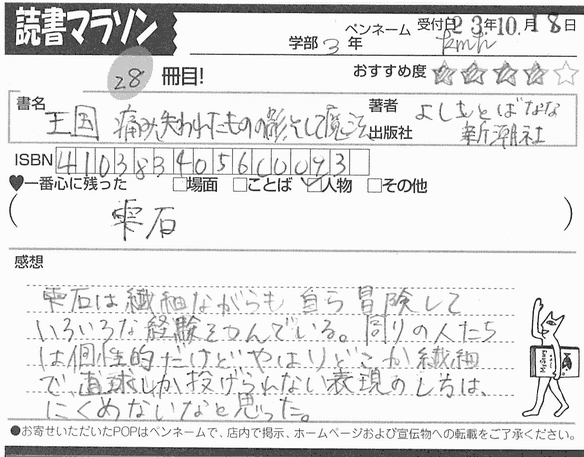 読書マラソン
受付日23年10月18日
学部3年 ペンネーム kmh
28冊目! おすすめ度 ★★★★☆
書名 王国 痛み、失われたものの影、そして魔法
著者 よしもとばなな
出版社 新潮社
ISBN 4103834056000093
♥一番心に残った □場面 □ことば ☑人物 □その他
(雫石)
感想
雫石は繊細ながらも自ら冒険して
いろいろな経験をつんでいる。周りの人たち
は個性的だけどやはりどこか繊細
で直球しか投げられない表現のし方は、
にくめないなと思った。
●お寄せいただいたPOPはペンネームで、店内で掲示、ホームページおよび宣伝物への転載をご了承ください。